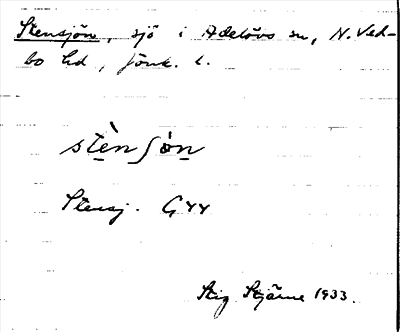 Stensjön, sjö i Adelövs sn, N. Ved-
bo hd, Jönk. l.
stèn ʃön
Stensj. G44
Stig Stjärne 1933.